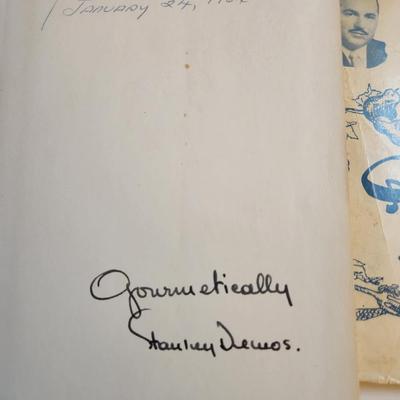 January 24,
Gourmetically
Stanley Demos.